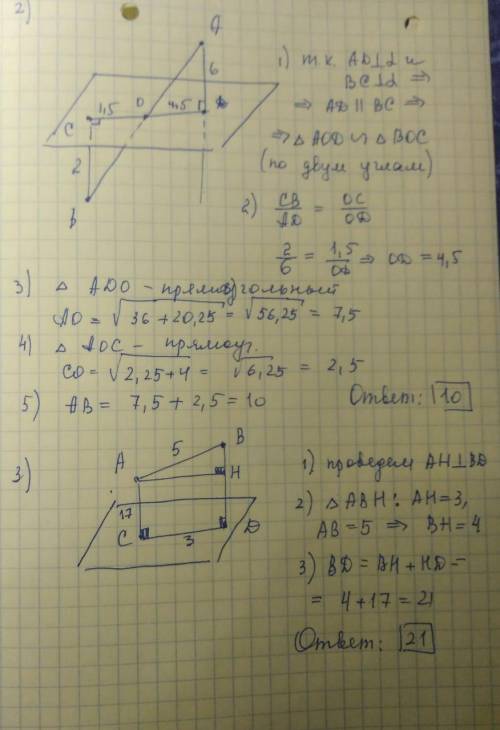 2)
A
6
C 1,5 O 4,5 D
2
B
1) т.к. AD⊥α и
BC⊥α ⇒
⇒ AD ∥ BC ⇒
⇒ △ AOD ∽ △ BOC
(по двум углам)
2) CB/AD = OC/OD
2/6 = 1,5/OD ⇒ OD = 4,5
3) △ ADO – прямоугольный
AO = √36 + 20,25 = √56,25 = 7,5
4) △ AOC – прямоуг.
CO = √2,25+4 = √6,25 = 2,5
5) AB = 7,5 + 2,5 = 10
Ответ: 10
3)
A 5 B
H
17
C 3 D
1) проведем AH⊥BD
2) △ ABH: AH=3,
AB=5 ⇒ BH=4
3) BD = BH + HD =
= 4+17 = 21
Ответ: 21